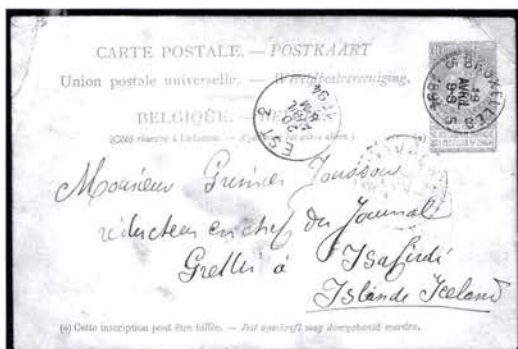 CARTE POSTALE. — POSTKAART
Union postale universelle. — Wereldpostvereeniging.
BELGIQUE. —
(Côté réservé à l'adresse. —
BRUXELLES 5
19
AVRIL
9-S
1894
EST
Monsieur Grímur Jonsson
rédacteur en chef du Journal
Grettir à Isafirdi
Islande Iceland
(a) Cette inscription peut être biffée. — Dit opschrift mag doorgehaald worden.